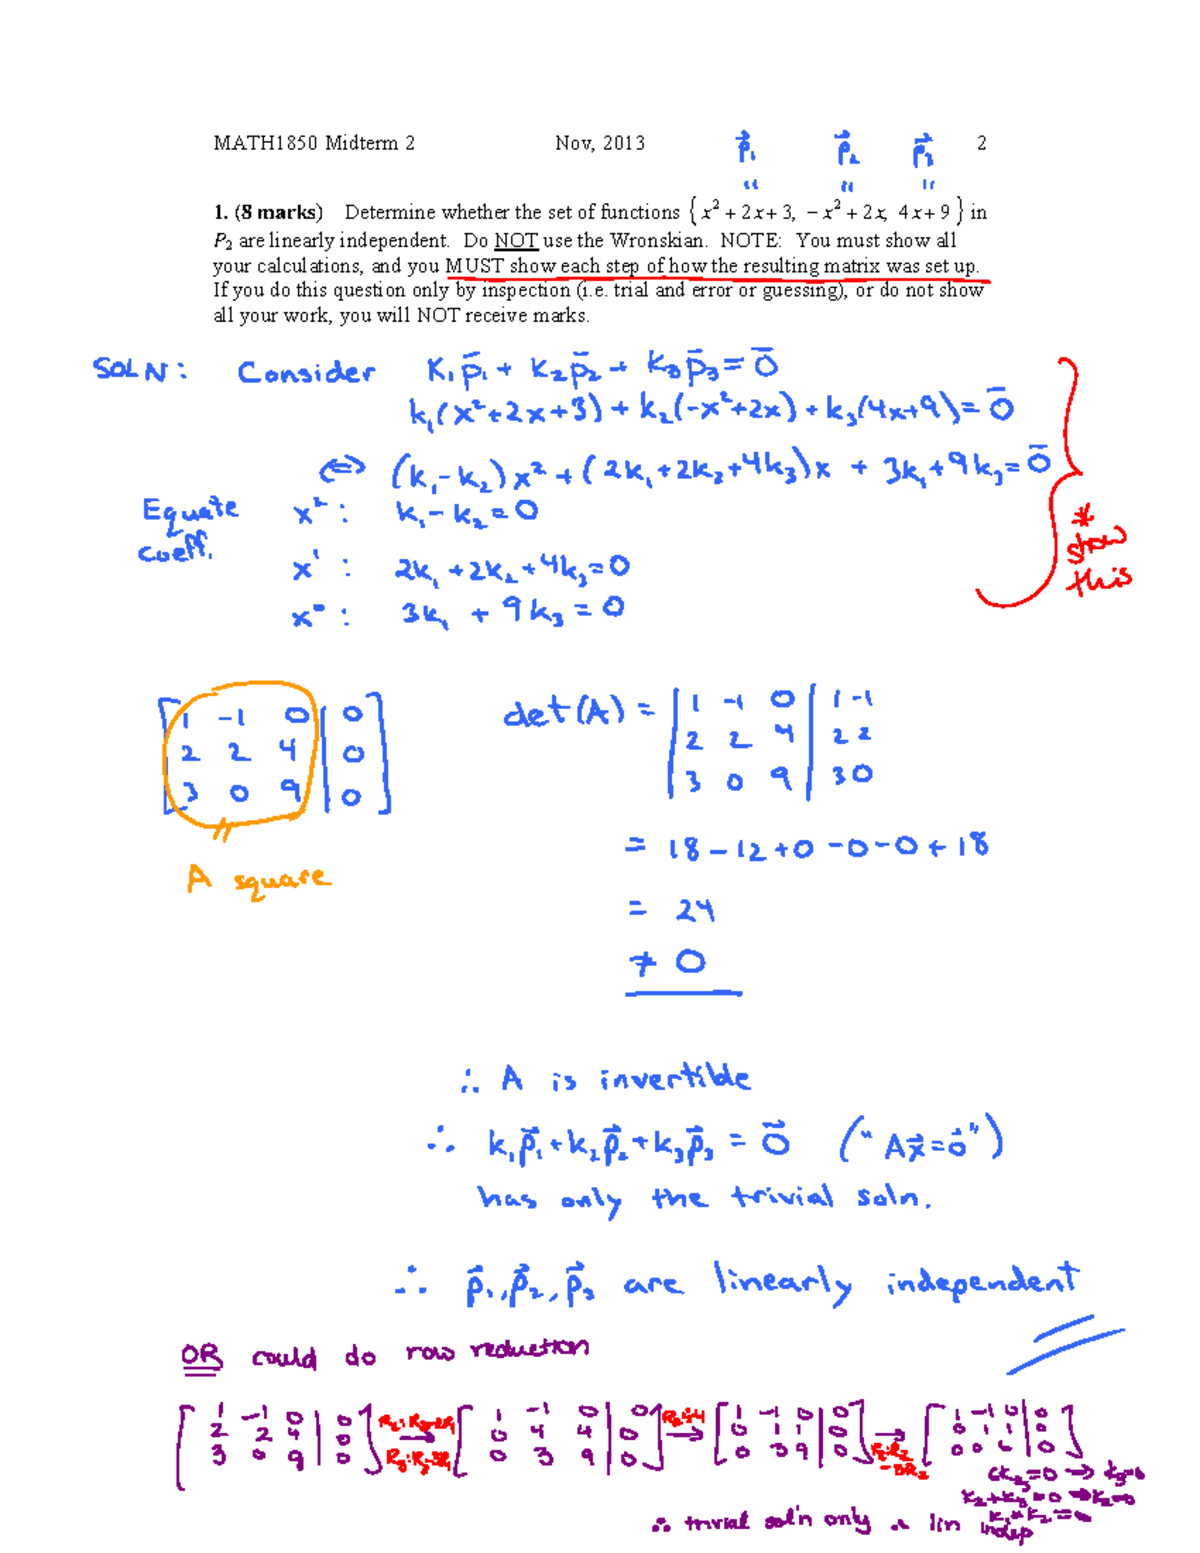 MATH1850 Midterm 2 Nov, 2013 2
p⃗₁ p⃗₂ p⃗₃
" " "
1. (8 marks) Determine whether the set of functions { x² + 2x + 3, − x² + 2x, 4x + 9 } in
P₂ are linearly independent. Do NOT use the Wronskian. NOTE: You must show all
your calculations, and you MUST show each step of how the resulting matrix was set up.
If you do this question only by inspection (i.e. trial and error or guessing), or do not show
all your work, you will NOT receive marks.
SOLN: Consider k₁p̄₁ + k₂p̄₂ + k₃p̄₃ = 0̄
k₁(x²+2x+3) + k₂(-x²+2x) + k₃(4x+9) = 0̄
⇔ (k₁-k₂)x² + (2k₁+2k₂+4k₃)x + 3k₁+9k₃ = 0̄
Equate coeff.
x²: k₁ - k₂ = 0
x¹: 2k₁ + 2k₂ + 4k₃ = 0
x⁰: 3k₁ + 9k₃ = 0
* show this
[ 1 -1 0 | 0
2 2 4 | 0
3 0 9 | 0 ]
A square
det(A) = | 1 -1 0 | 1 -1
2 2 4 | 2 2
3 0 9 | 3 0
= 18 - 12 + 0 - 0 - 0 + 18
= 24
≠ 0
∴ A is invertible
∴ k₁p⃗₁ + k₂p⃗₂ + k₃p⃗₃ = 0⃗ ("Ax⃗=0⃗")
has only the trivial soln.
∴ p⃗₁, p⃗₂, p⃗₃ are linearly independent
OR could do row reduction
[ 1 -1 0 | 0
2 2 4 | 0
3 0 9 | 0 ]
R₂:R₂-2R₁
→
R₃:R₃-3R₁
[ 1 -1 0 | 0
0 4 4 | 0
0 3 9 | 0 ]
R₂÷4
→
[ 1 -1 0 | 0
0 1 1 | 0
0 3 9 | 0 ]
→
-3R₂
[ 1 -1 0 | 0
0 1 1 | 0
0 0 6 | 0 ]
6k₃=0 → k₃=0
k₂+k₃=0 → k₂=0
∴ trivial sol'n only ∴ lin indep